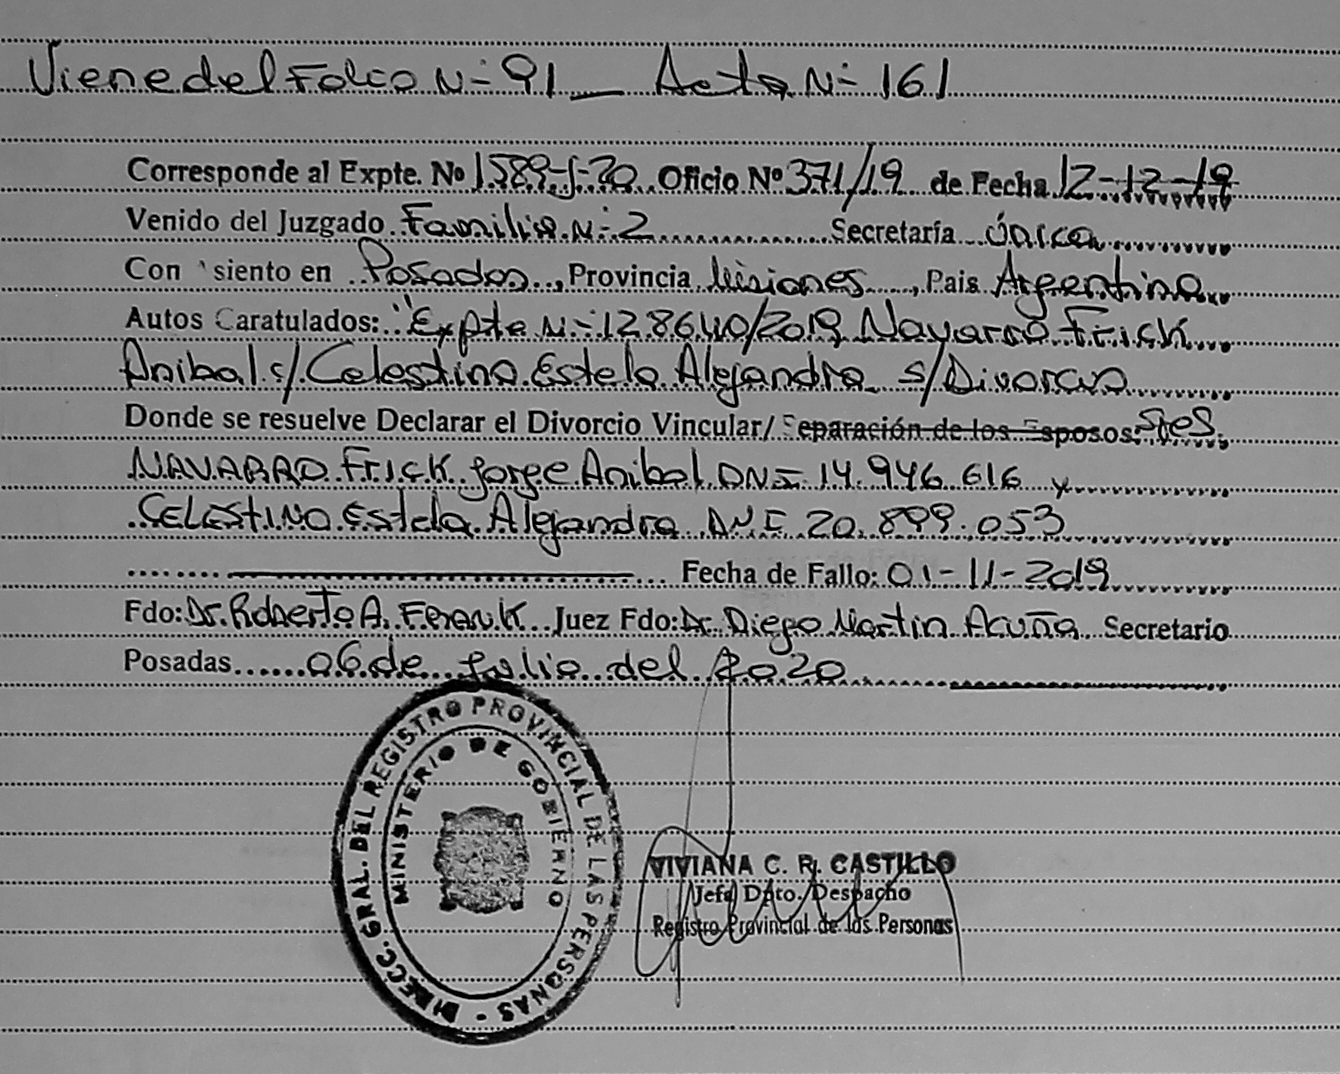 Viene del Folio N° 91 — Acta N° 161
Corresponde al Expte. Nº 1589-J-20 Oficio Nº 371/19 de Fecha 12-12-19
Venido del Juzgado Familia N° 2 Secretaría Única
Con siento en Posadas, Provincia Misiones, Pais Argentina
Autos Caratulados: "Expte N° 128640/2019 Navarro Frick
Anibal c/ Celestino Estela Alejandra s/Divorcio
Donde se resuelve Declarar el Divorcio Vincular/ Separación de los Esposos: Sres.
NAVARRO Frick Jorge Anibal DNI 14.946.616 y
CELESTINO Estela Alejandra DNI 20.899.053
Fecha de Fallo: 01-11-2019
Fdo: Dr. Roberto A. Juez Fdo: Dr. Diego Martin Acuña Secretario
Posadas 06 de Julio del 2020
DIRECC. GRAL. DEL REGISTRO PROVINCIAL DE LAS PERSONAS -
MINISTERIO DE GOBIERNO
VIVIANA C. R. CASTILLO
Jefa Dpto. Despacho
Registro Provincial de las Personas